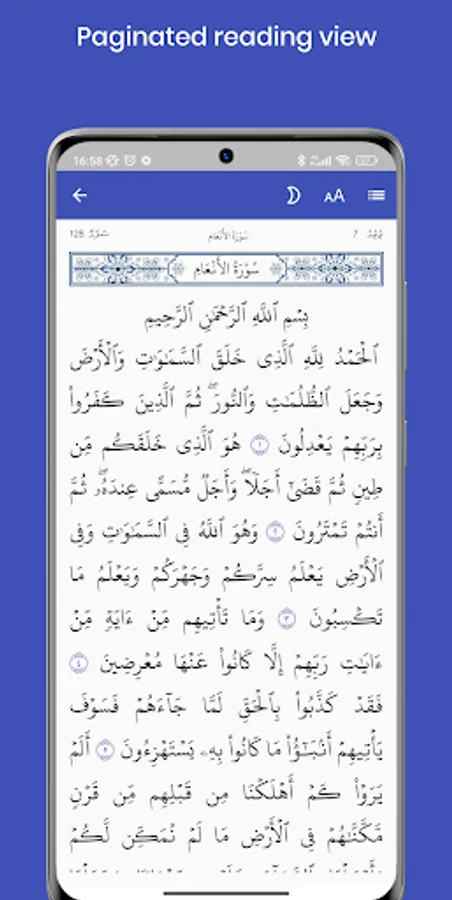 Paginated reading view
16:58
سُورَةُ الأَنْعَامِ
سُورَةُ الأَنْعَامِ
بِسْمِ ٱللَّهِ ٱلرَّحْمَٰنِ ٱلرَّحِيمِ
ٱلْحَمْدُ لِلَّهِ ٱلَّذِى خَلَقَ ٱلسَّمَٰوَٰتِ وَٱلْأَرْضَ
وَجَعَلَ ٱلظُّلُمَٰتِ وَٱلنُّورَ ۖ ثُمَّ ٱلَّذِينَ كَفَرُوا۟
بِرَبِّهِمْ يَعْدِلُونَ ١ هُوَ ٱلَّذِى خَلَقَكُم مِّن
طِينٍ ثُمَّ قَضَىٰٓ أَجَلًا ۖ وَأَجَلٌ مُّسَمًّى عِندَهُۥ ۖ ثُمَّ
أَنتُمْ تَمْتَرُونَ ٢ وَهُوَ ٱللَّهُ فِى ٱلسَّمَٰوَٰتِ وَفِى
ٱلْأَرْضِ يَعْلَمُ سِرَّكُمْ وَجَهْرَكُمْ وَيَعْلَمُ مَا
تَكْسِبُونَ ٣ وَمَا تَأْتِيهِم مِّنْ ءَايَةٍ مِّنْ
ءَايَٰتِ رَبِّهِمْ إِلَّا كَانُوا۟ عَنْهَا مُعْرِضِينَ ٤
فَقَدْ كَذَّبُوا۟ بِٱلْحَقِّ لَمَّا جَآءَهُمْ فَسَوْفَ
يَأْتِيهِمْ أَنۢبَٰٓؤُا۟ مَا كَانُوا۟ بِهِۦ يَسْتَهْزِءُونَ ٥ أَلَمْ
يَرَوْا۟ كَمْ أَهْلَكْنَا مِن قَبْلِهِم مِّن قَرْنٍ
مَّكَّنَّٰهُمْ فِى ٱلْأَرْضِ مَا لَمْ نُمَكِّن لَّكُمْ